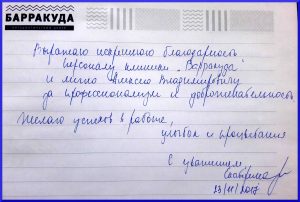 БАРРАКУДА
Выражаю искреннюю благодарность
персоналу клиники "Барракуда"
и лично Алексею Владимировичу
за профессионализм и доброжелательность
Желаю успехов в работе,
улыбок и процветания
С уважением,
23/11/2017